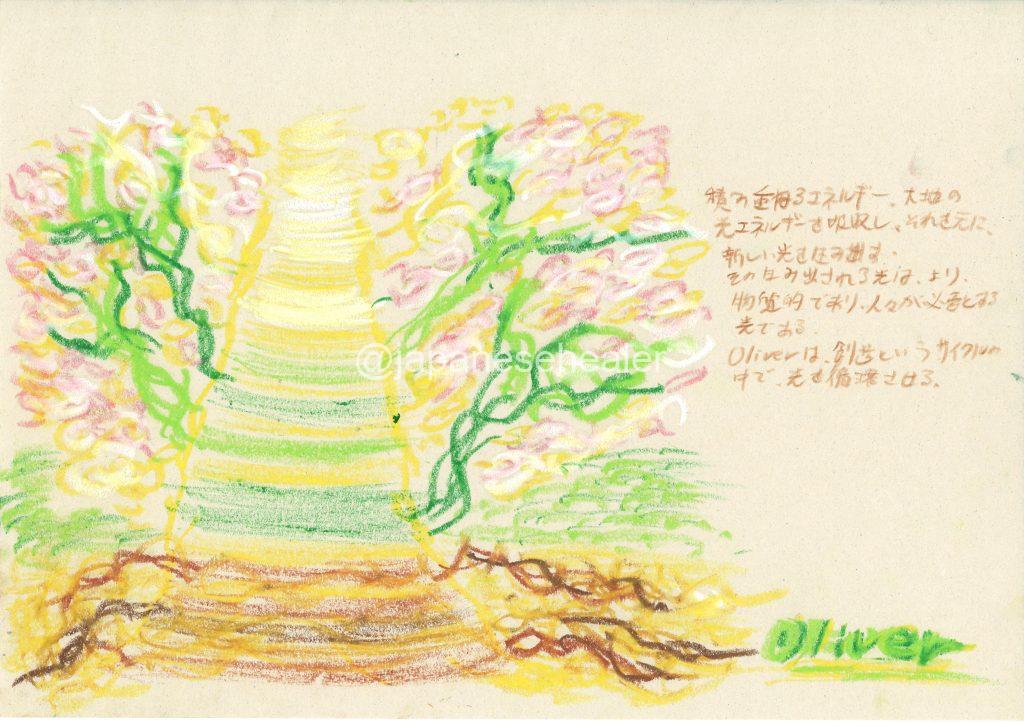 積み重なるエネルギー、大地の
光エネルギーを吸収し、それを元に、
新しい光を生み出す.
その生み出される光は、より、
物質的であり、人々が必要とする
光である.
Oliverは、創造というサイクルの
中で、光を循環させる.
@japanesehealer
Oliver